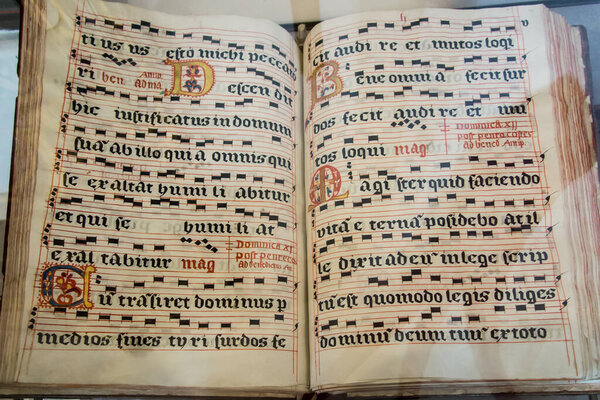 ti us us esto michi peccato
ri ben. D escen dit
hic iustificatus in domum
sua ab illo qui a omnis qui
se exaltat humi li abitur
et qui se humi li at
Dominica XI
post penteco
ad benedictus
exal tabitur mag
C u trāsiret dominus p
medios fines ty ri surdos fe
cit audi re et mutos loqi
B ene omni a fecit sur
dos fecit audire et mu
Dominica XII
post pentecostes
ad bened
tos loqui mag
M agister quid faciendo
vitā e ternā posidebo at il
le dixit ad eū in lege scrip
tū est quomodo legis diliges
dominū deum tuū ex toto